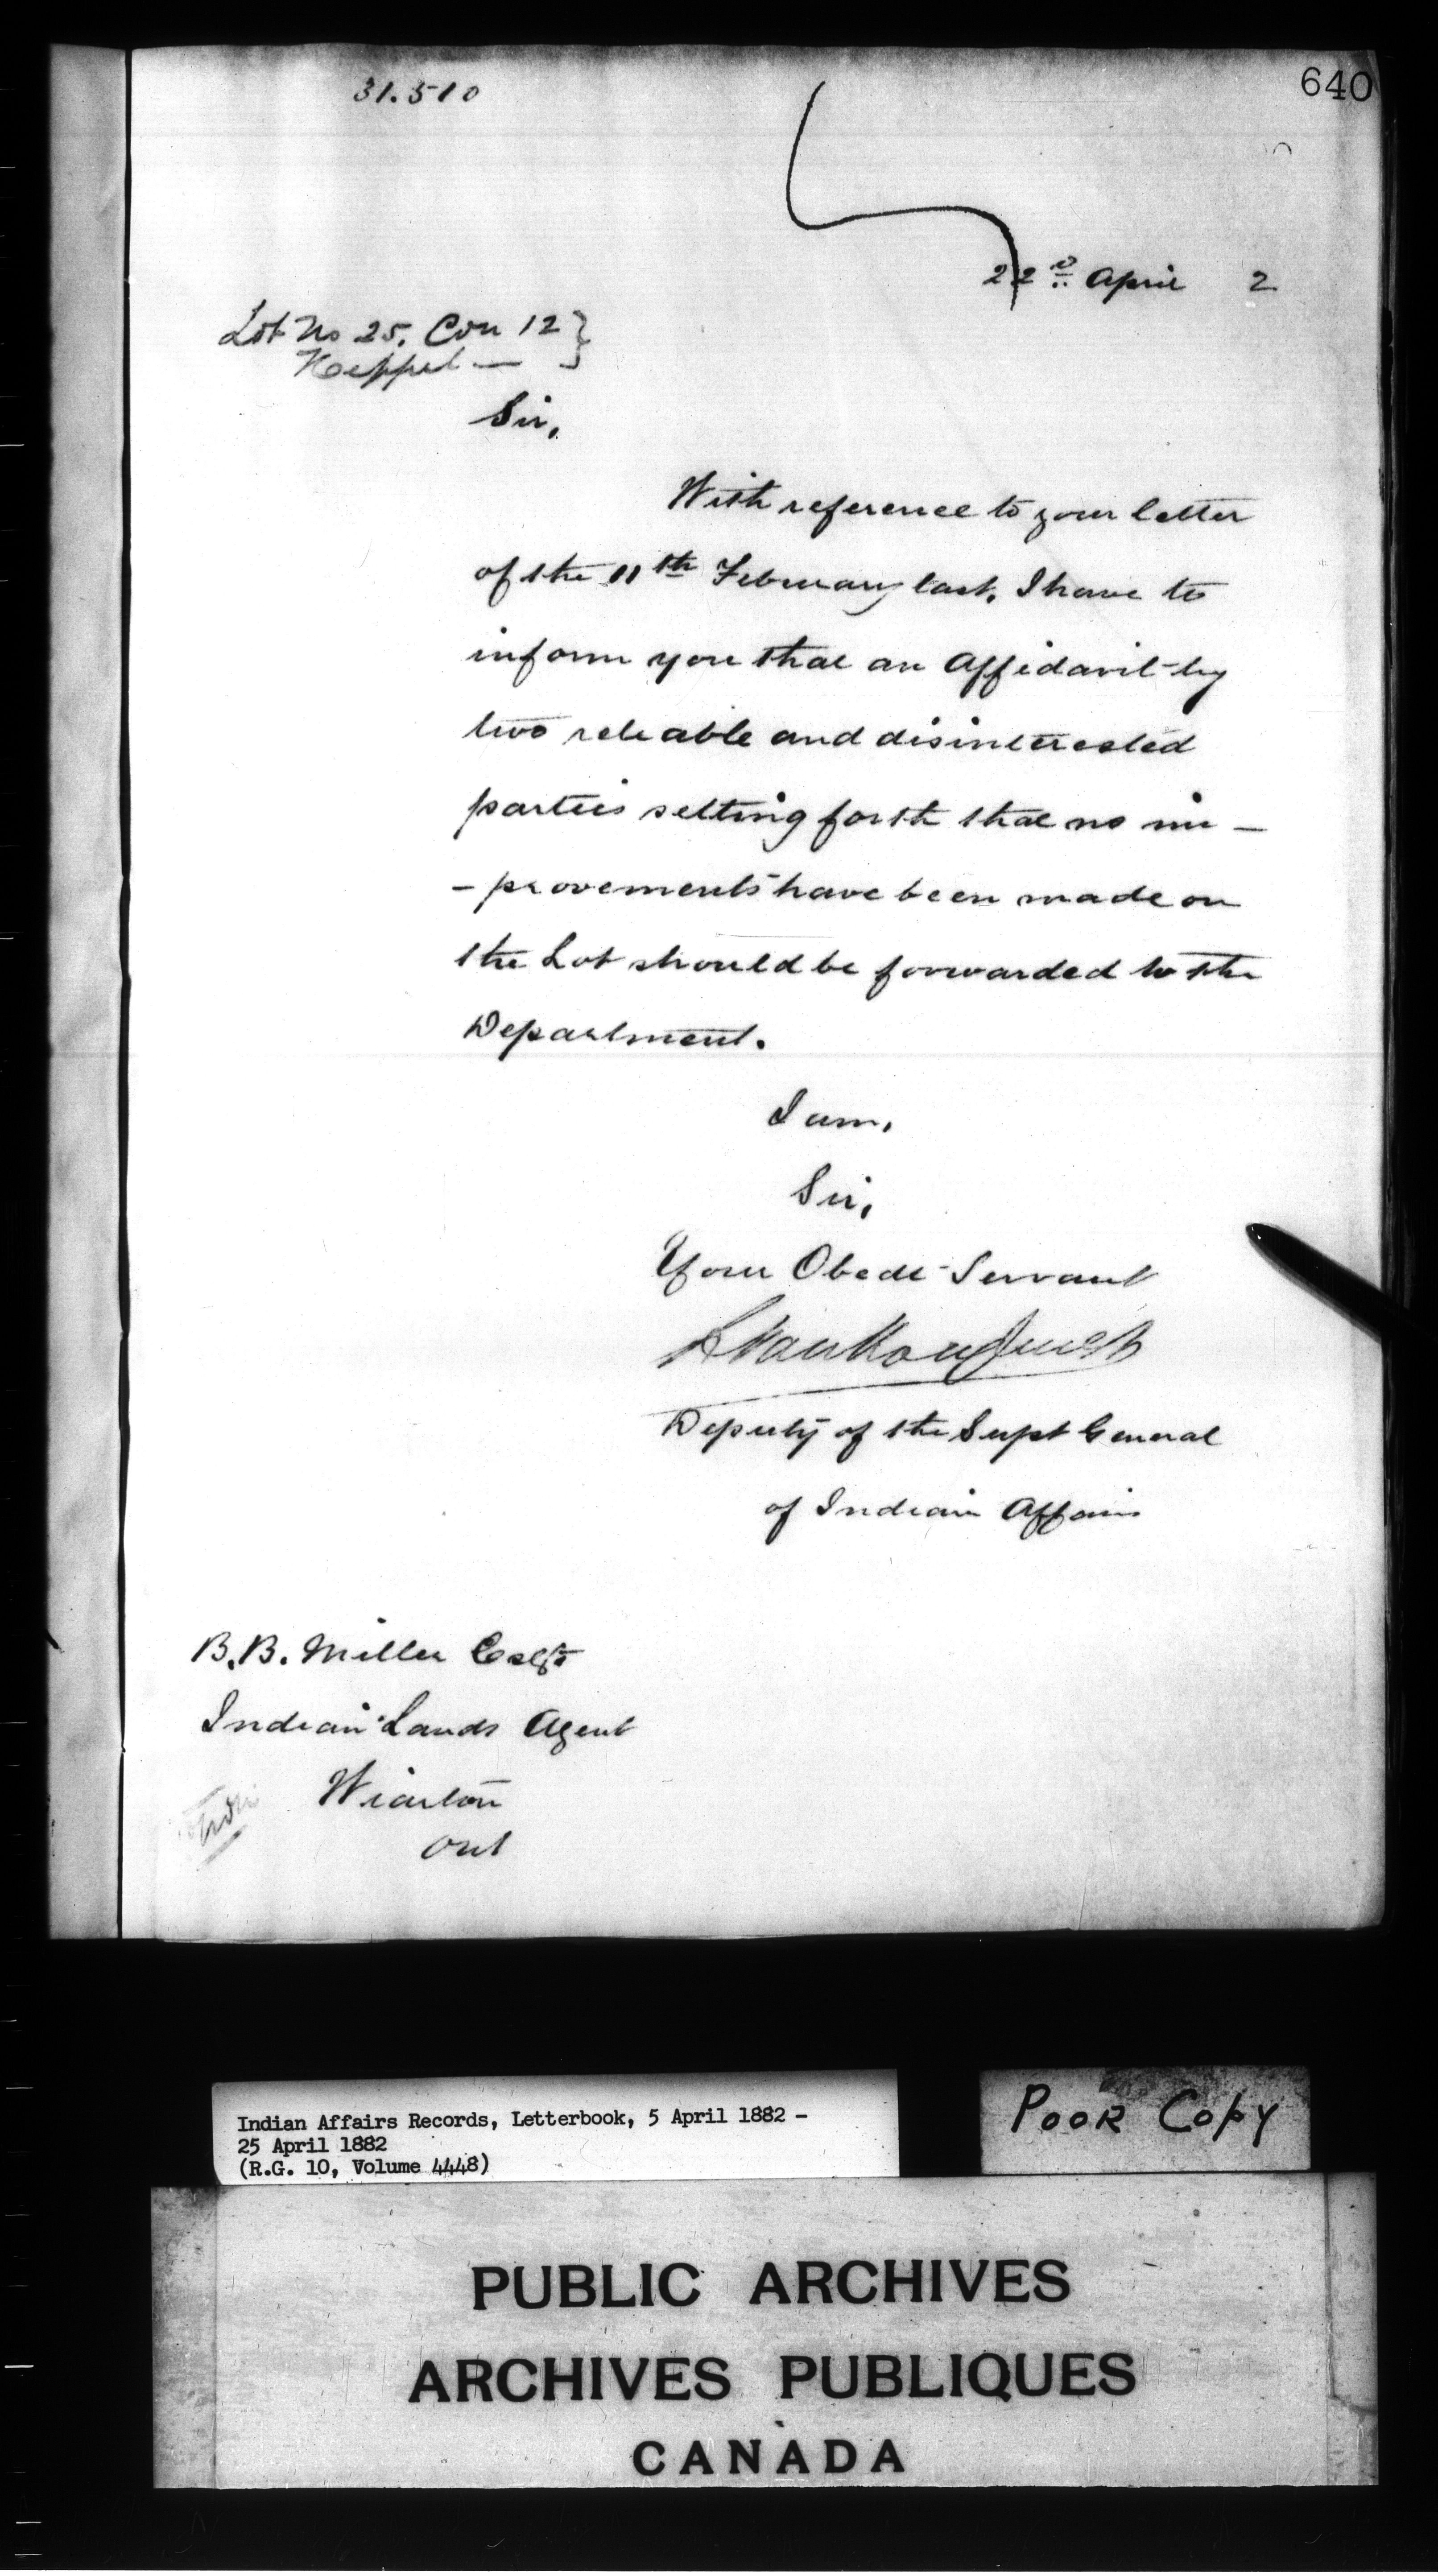 31.510
640
22nd April 2
Lot No 25, Con 12 }
Keppel —
Sir,
With reference to your letter
of the 11th February last, I have to
inform you that an Affidavit by
two reliable and disinterested
parties setting forth that no im –
– provements have been made on
the Lot should be forwarded to the
Department.
I am,
Sir,
Your Obedt Servant
L VanKoughnet
Deputy of the Supt General
of Indian Affairs
B.B. Miller Esqr
Indian Lands Agent
Wiarton
Ont
Indian Affairs Records, Letterbook, 5 April 1882 -
25 April 1882
(R.G. 10, Volume 4448)
POOR COPY
PUBLIC ARCHIVES
ARCHIVES PUBLIQUES
CANADA